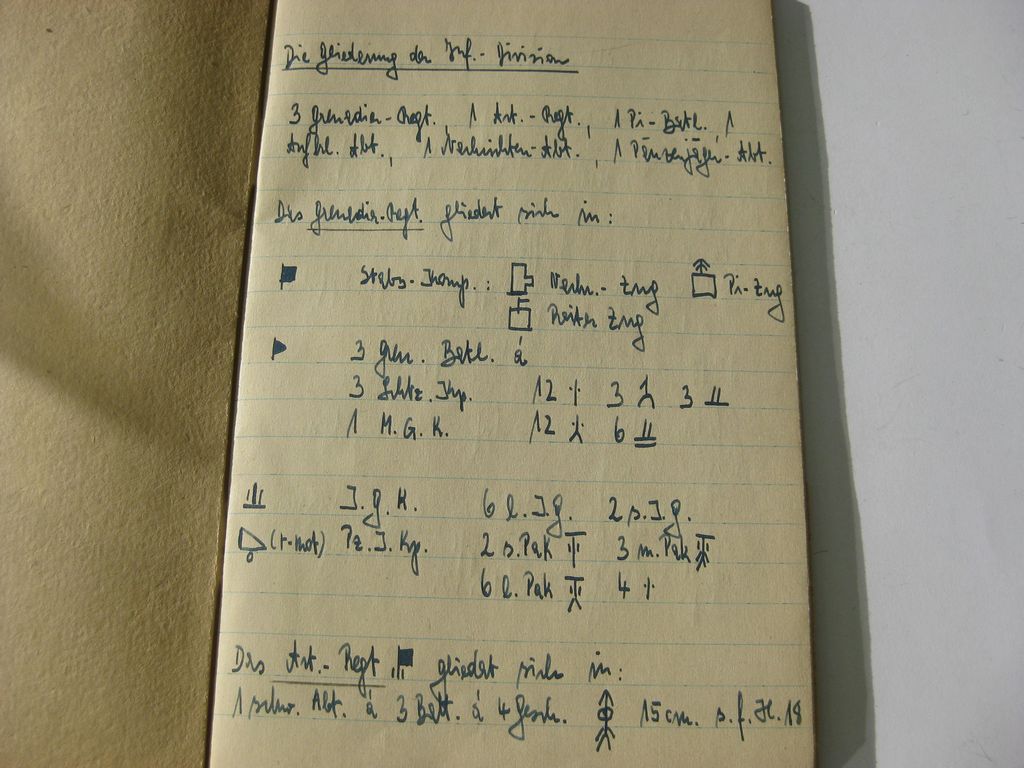 Die Gliederung der Inf.- Division
3 Grenadier-Regt., 1 Art.-Regt., 1 Pi-Batl., 1
Aufkl. Abt., 1 Nachrichten-Abt., 1 Panzerjäger-Abt.
Das Grenadier-Regt. gliedert sich in:
Stabs-Komp.: Nachr.-Zug Pi-Zug
Reiter Zug
3 Gren. Batl. á
3 Schtz. Kp. 12 3 3
1 M.G.K. 12 6
J.G.K. 6 l.J.G. 2 s.J.G.
(t-mot) Pz.J.Kp. 2 s.Pak 3 m.Pak
6 l.Pak 4
Das Art.-Regt gliedert sich in:
1 schw. Abt. á 3 Batt. á 4 Gesch. 15 cm. s.f.H.18